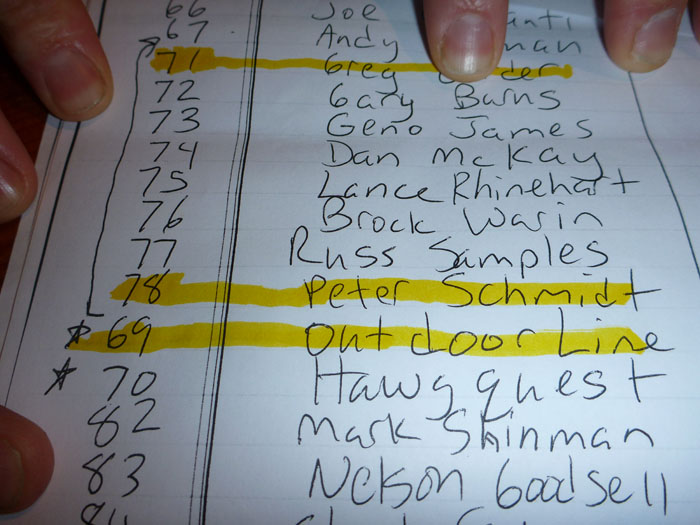 66 Joe
67 Andy
71 Greg
72 Gary Burns
73 Geno James
74 Dan McKay
75 Lance Rhinehart
76 Brock Warin
77 Russ Samples
78 Peter Schmidt
69 Outdoor Line
70 Hawgquest
82 Mark Shinman
83 Nelson Goodsell